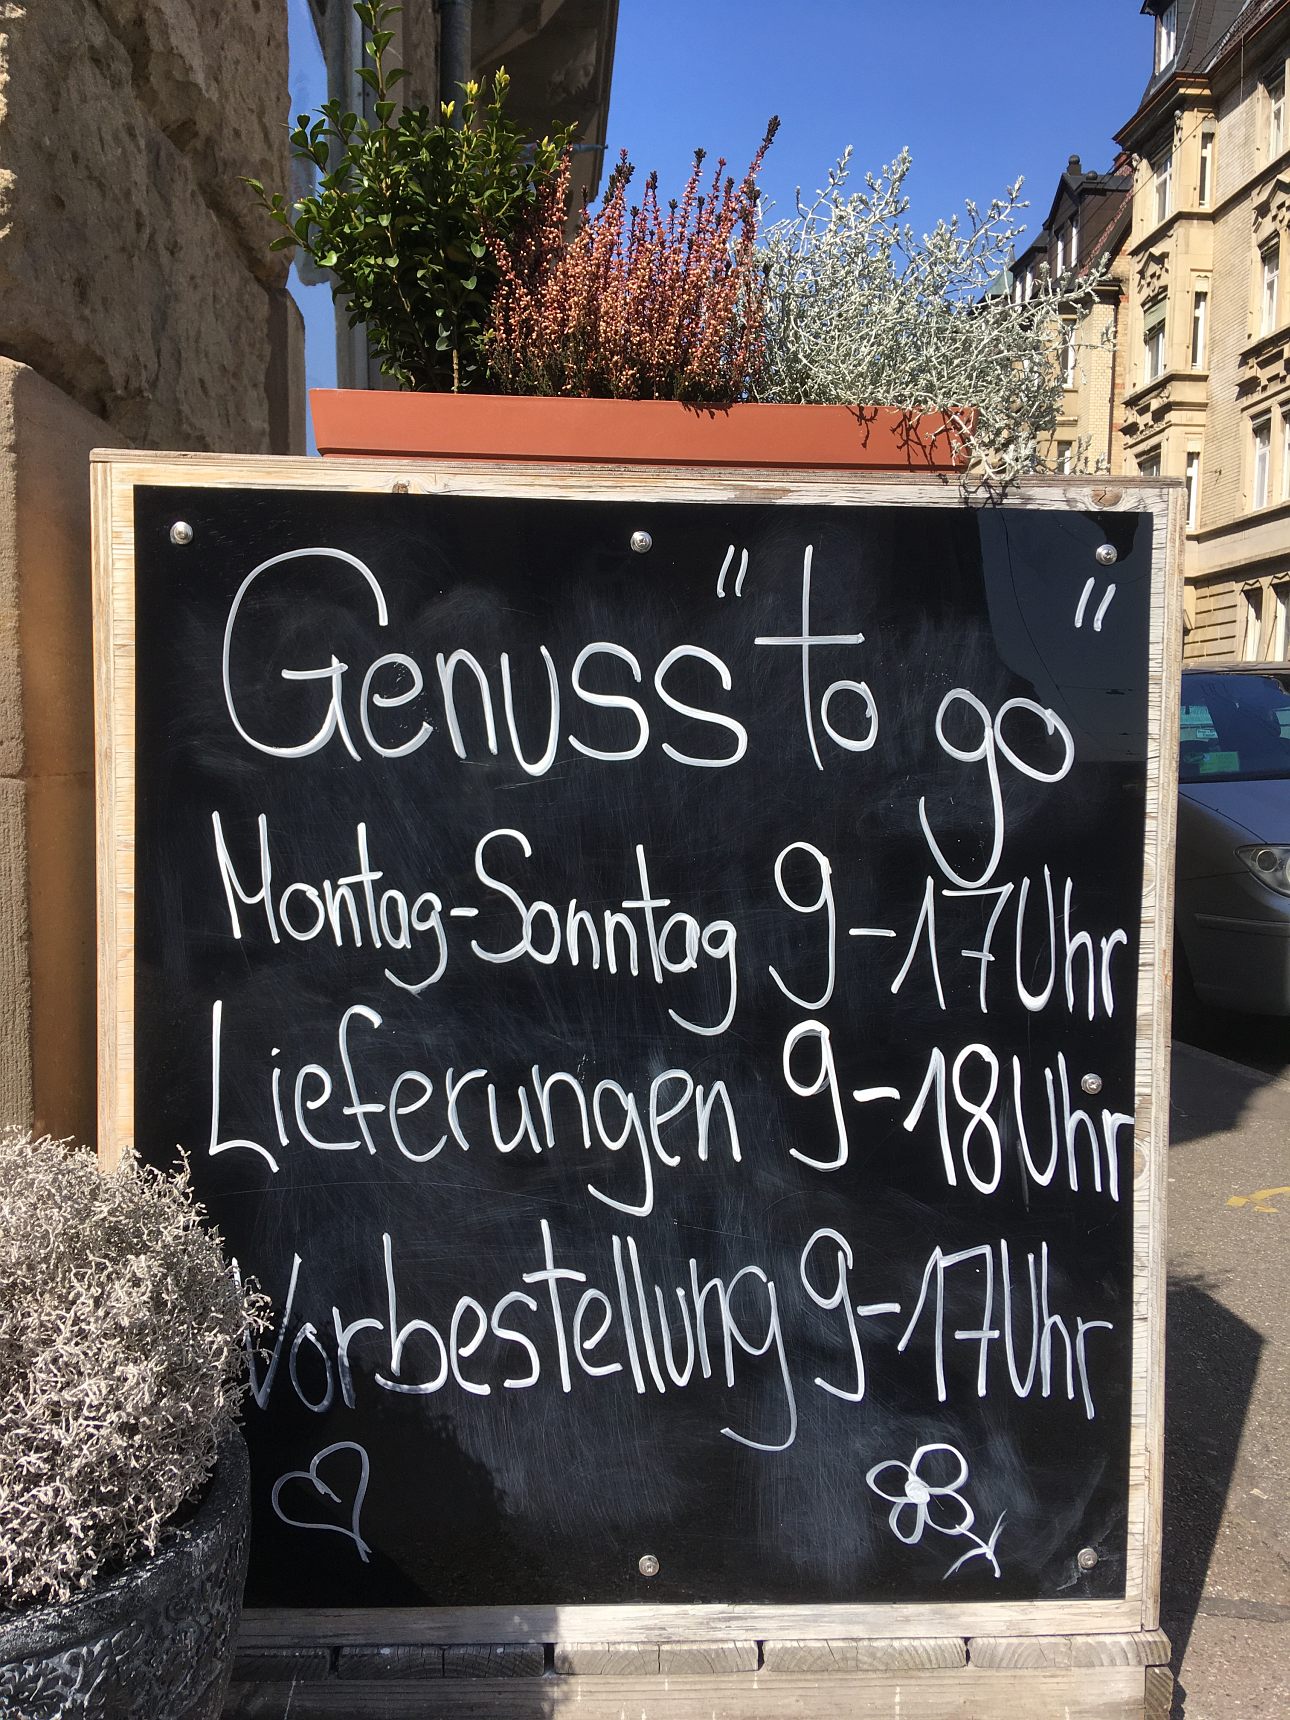 Genuss "to go"
Montag-Sonntag 9-17Uhr
Lieferungen 9-18Uhr
Vorbestellung 9-17Uhr